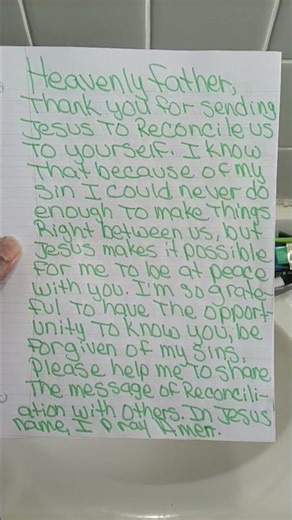 Heavenly Father,
Thank you for sending
Jesus To Reconcile us
To yourself. I know
That because of my
Sin I could never do
enough To make Things
Right between us, but
Jesus makes it possible
for me To be at peace
with you. I'm so grate-
ful To have The opport-
unity To know you, be
forgiven of my sins,
Please help me To share
The message of Reconcili-
ation with others. In Jesus
name, I pray Amen.